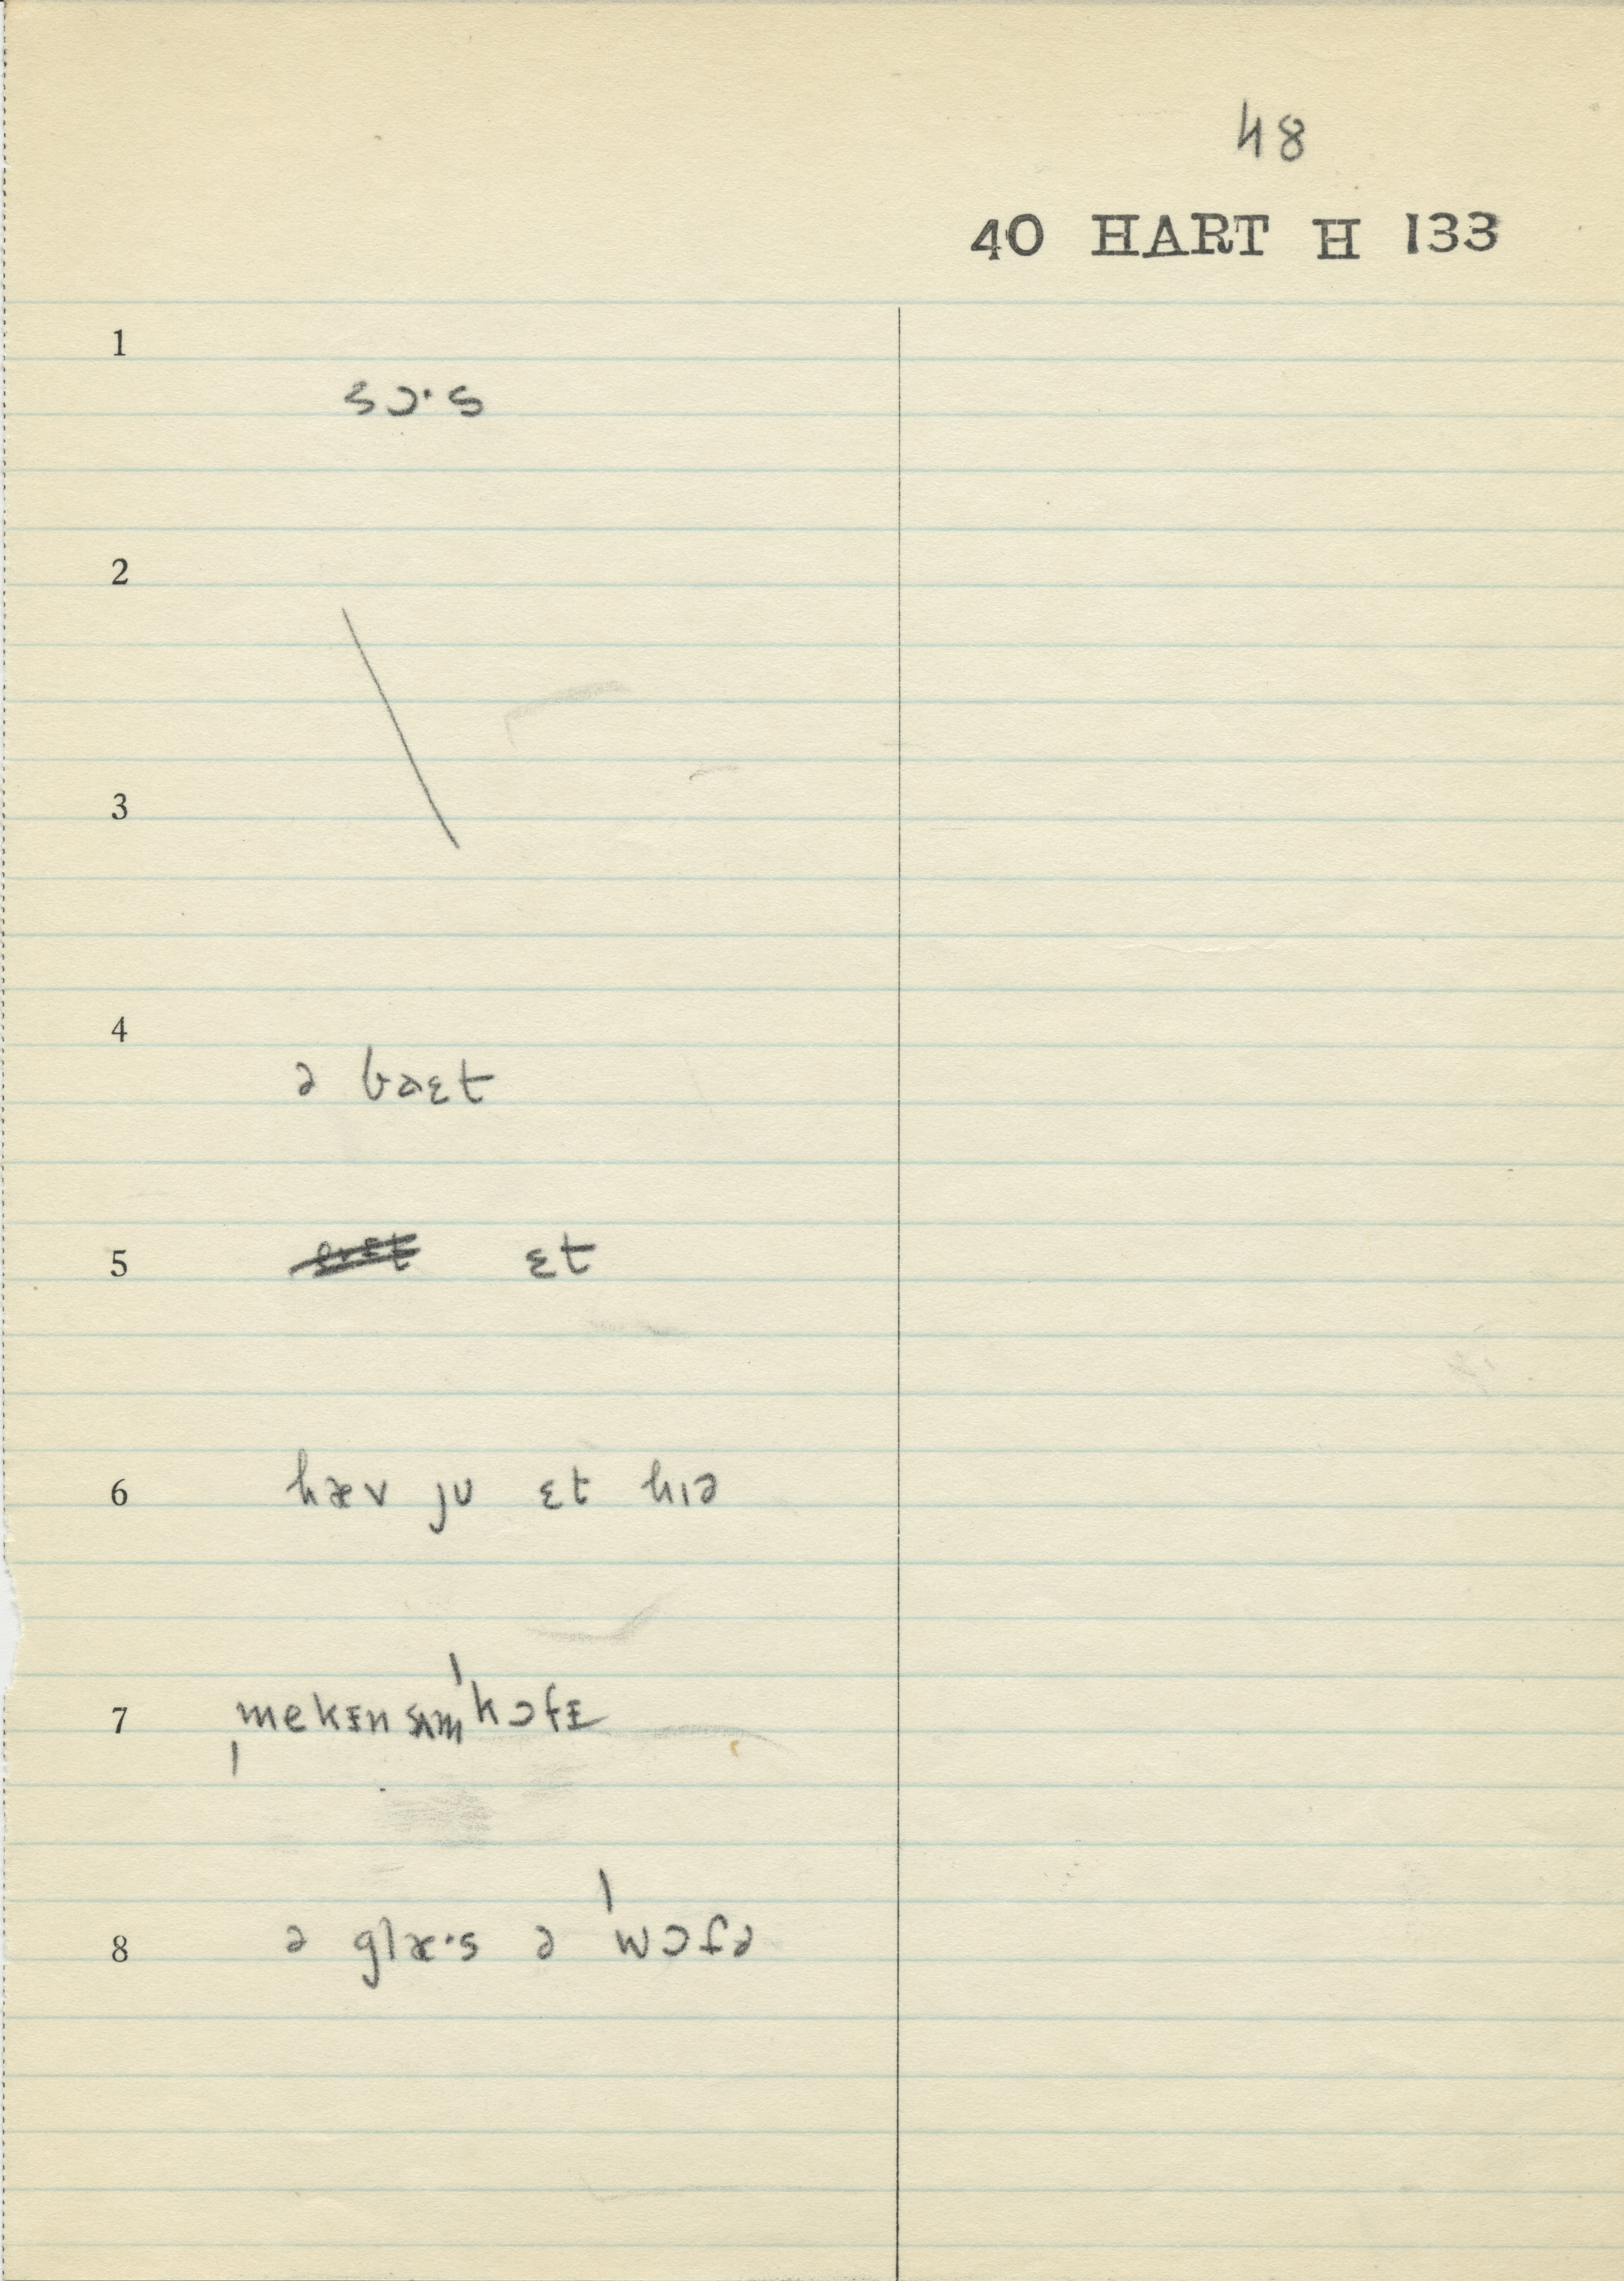 48
40 HART H 133
1
sɔ·s
2
3
4
ə baɛt
5 ɛt
6 hæv jʊ ɛt hɪə
7 ˌmekɪn sʌm ˈkɔfɪ
8 ə glæ·s ə ˈwɔtə